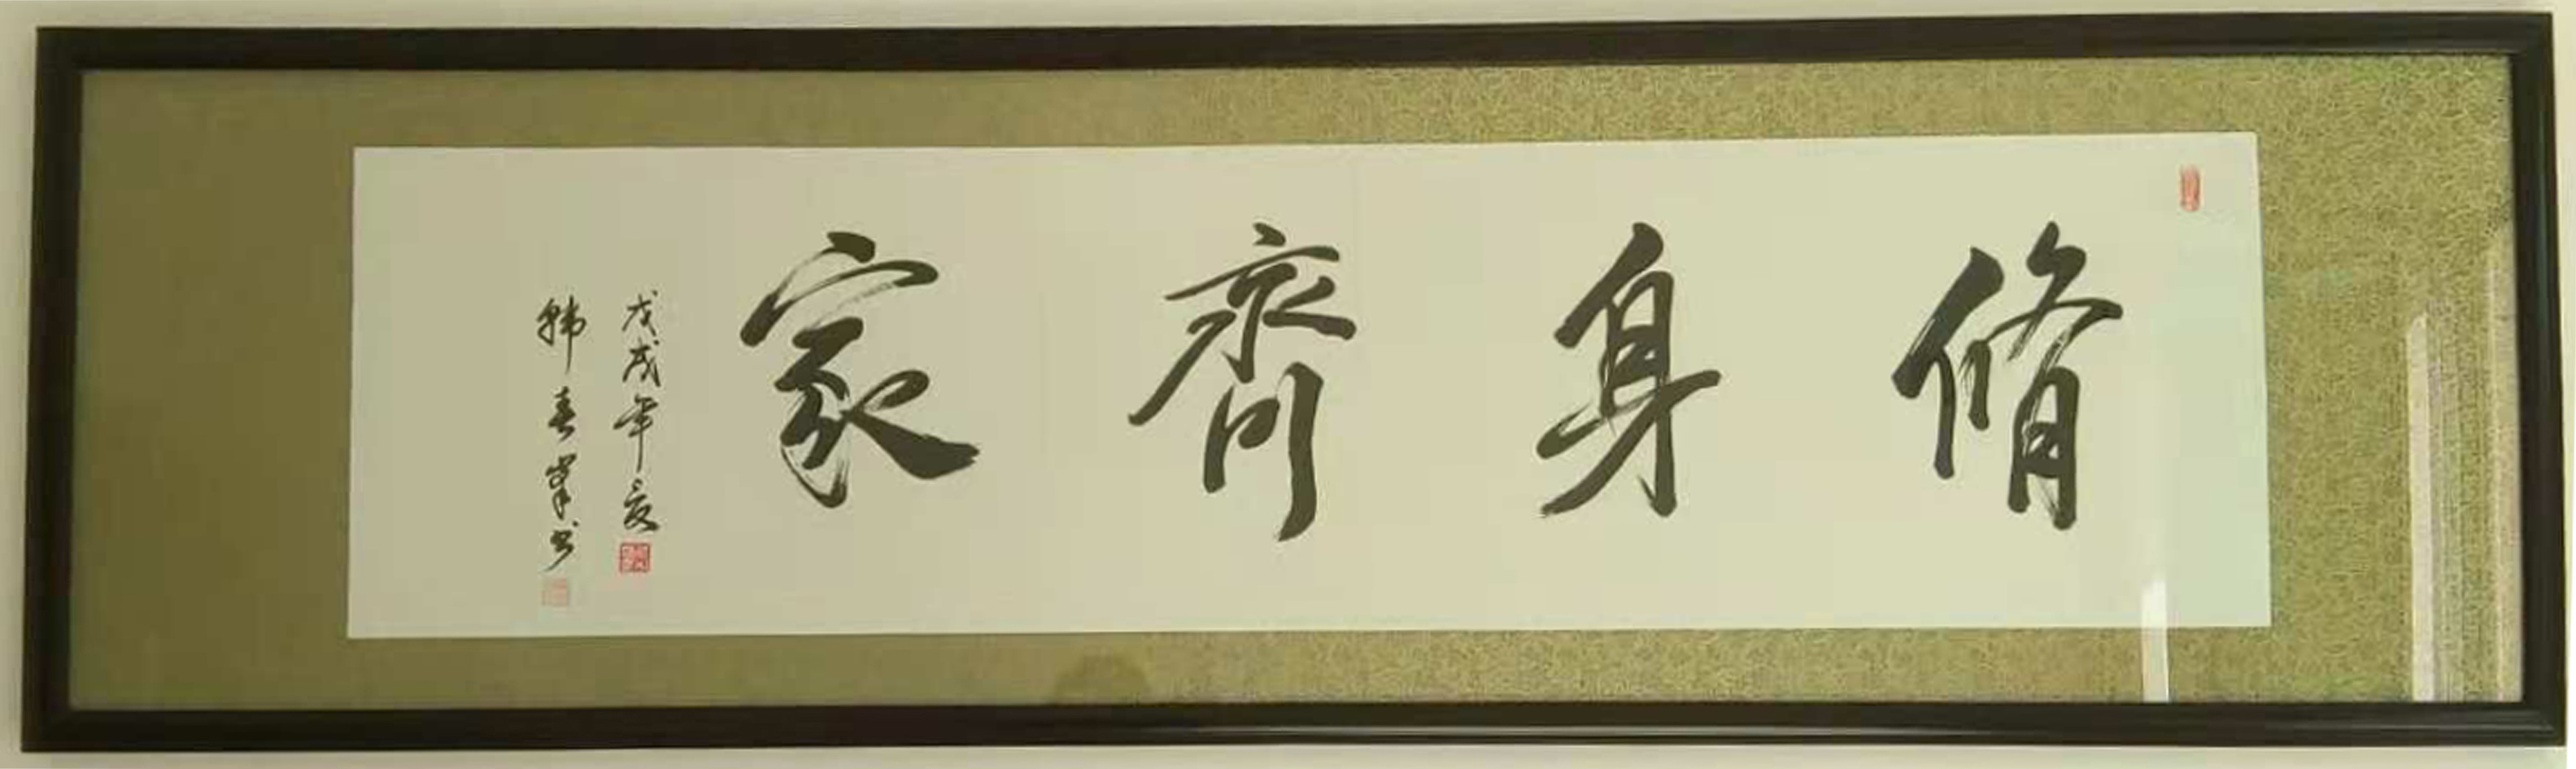 脩身齊家
戊戌年夏
韩春峯书